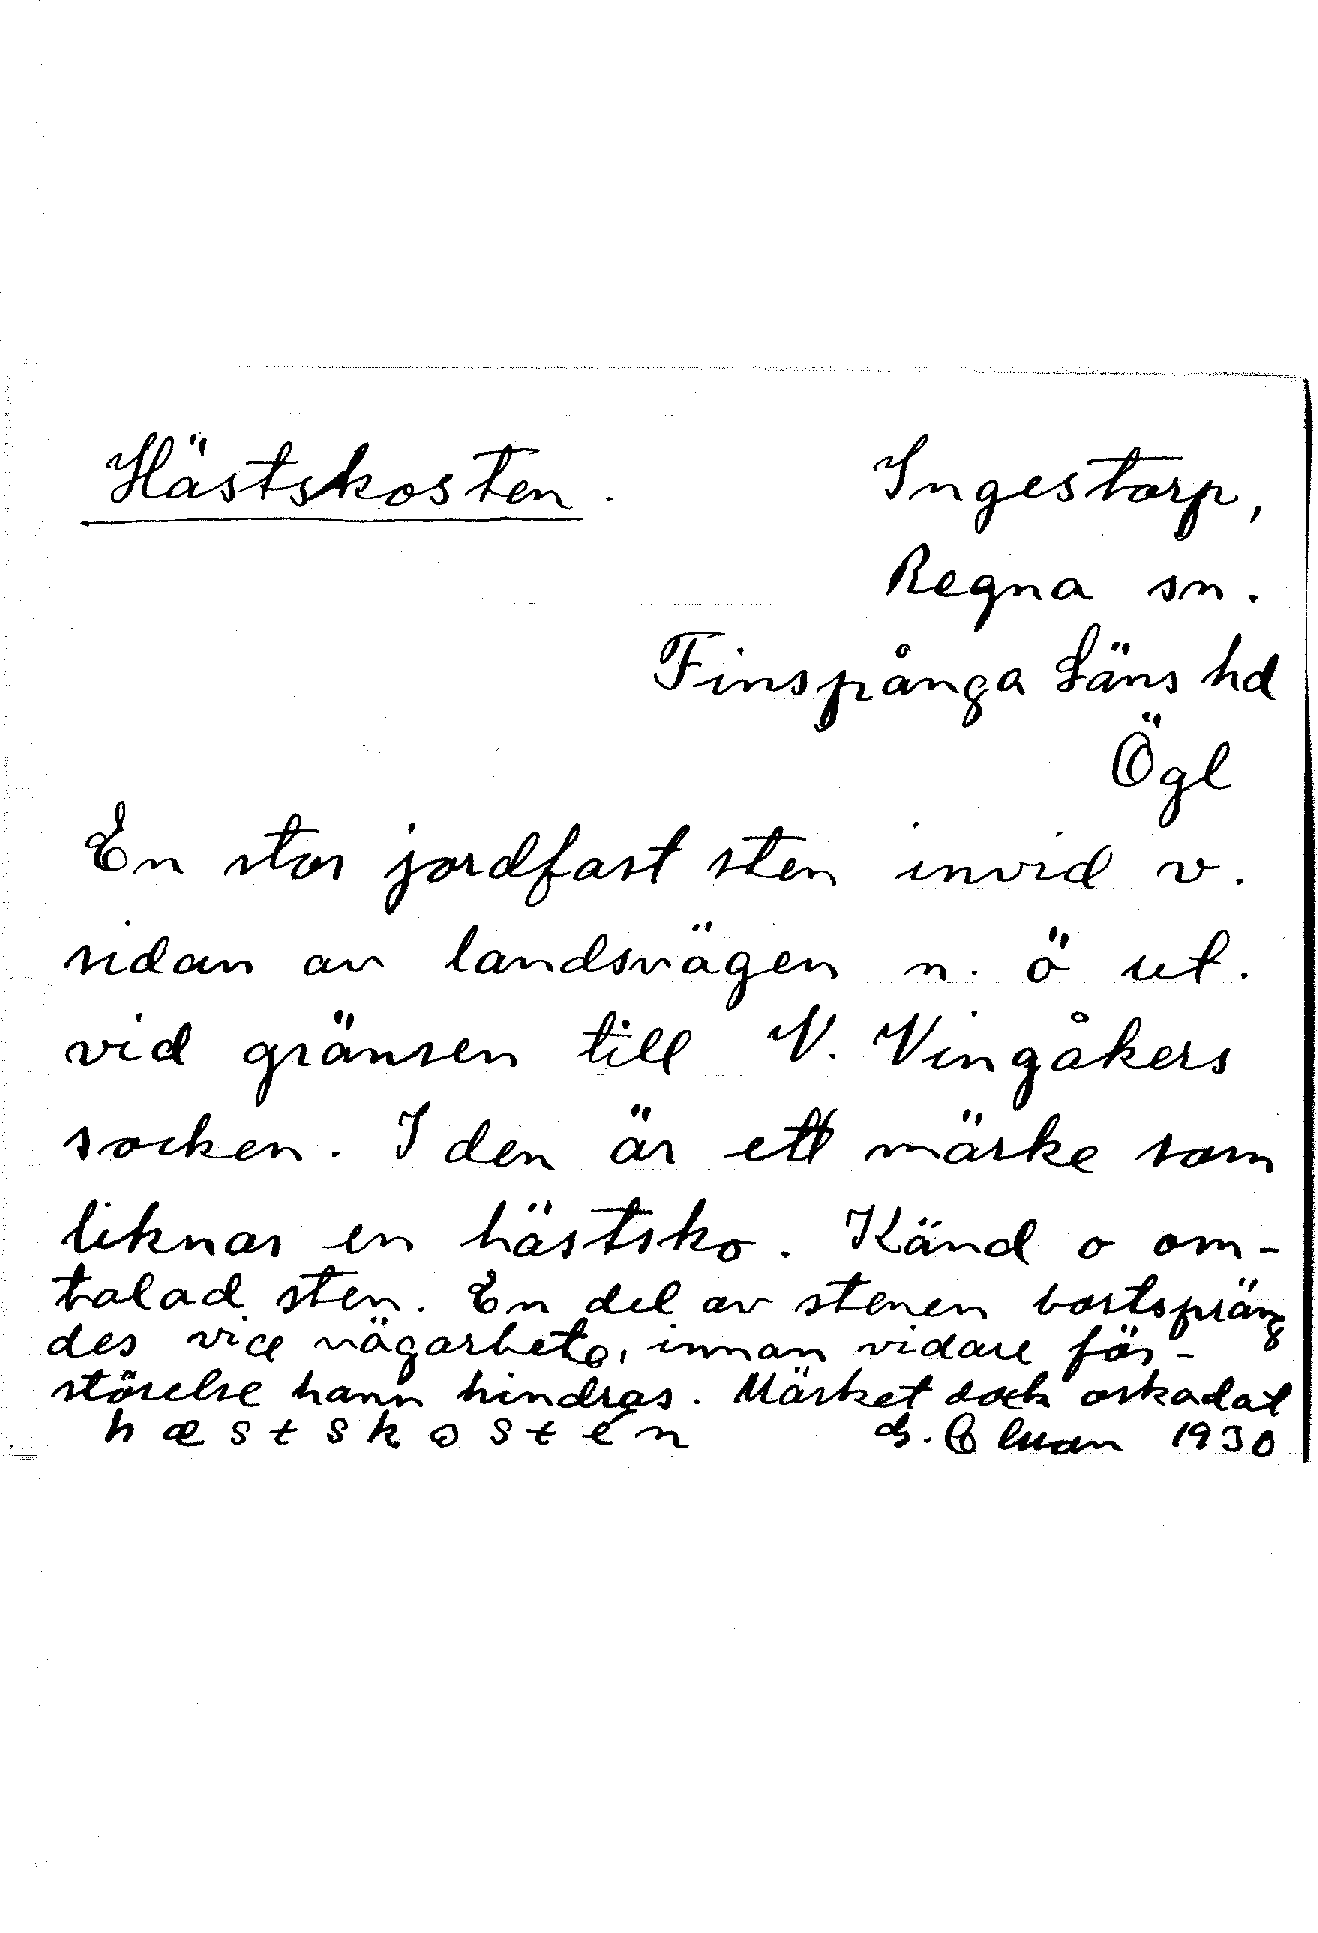 Hästskosten.
Ingestorp,
Regna sn.
Finspånga Läns hd
Ögl
En stor jordfast sten invid v.
sidan av landsvägen n. ö ut.
vid gränsen till V. Vingåkers
socken. I den är ett märke som
liknar en hästsko. Känd o om-
talad sten. En del av stenen bortspräng
des vid vägarbete, innan vidare för-
störelse hann hindras. Märket dock oskadat
hæstskostén
1930